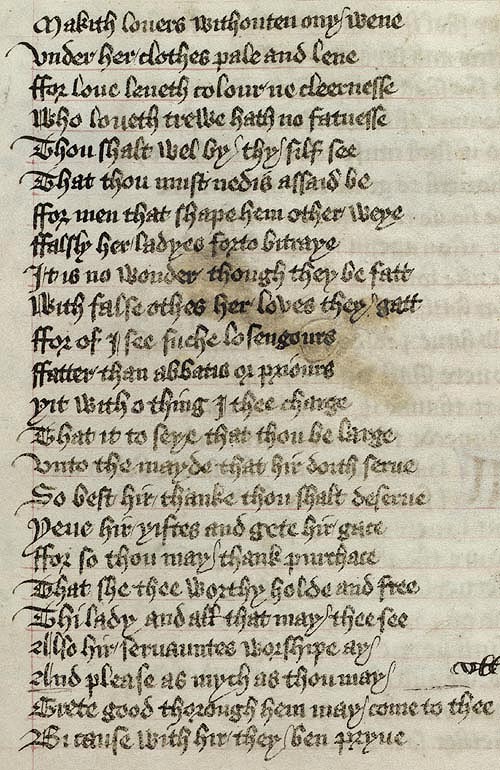 Makith louers withouten ony wene
Vnder her clothes pale and lene
ffor loue leueth colour ne cleernesse
Who loueth trewe hath no fatnesse
Thou shalt wel by thy silf see
That thou must nedis assaid be
ffor men that shape hem other weye
ffalsly her ladyes forto bitraye
It is no wonder though they be fatt
With false othes her loves they gatt
ffor oft I see suche losengours
ffatter than abbatis or priours
Yit with o thing I thee charge
That it to seye that thou be large
Vnto the mayde that hir doith serue
So best hir thanke thou shalt deserue
Yeue hir yiftes and gete hir gace
ffor so thou may thank purchace
That she thee worthy holde and free
Thi lady and all that may thee see
Also hir seruauntes worshipe ay
And please as mych as thou may
Grete good thorough hem may come to thee
Bi cause with hir they ben pryue